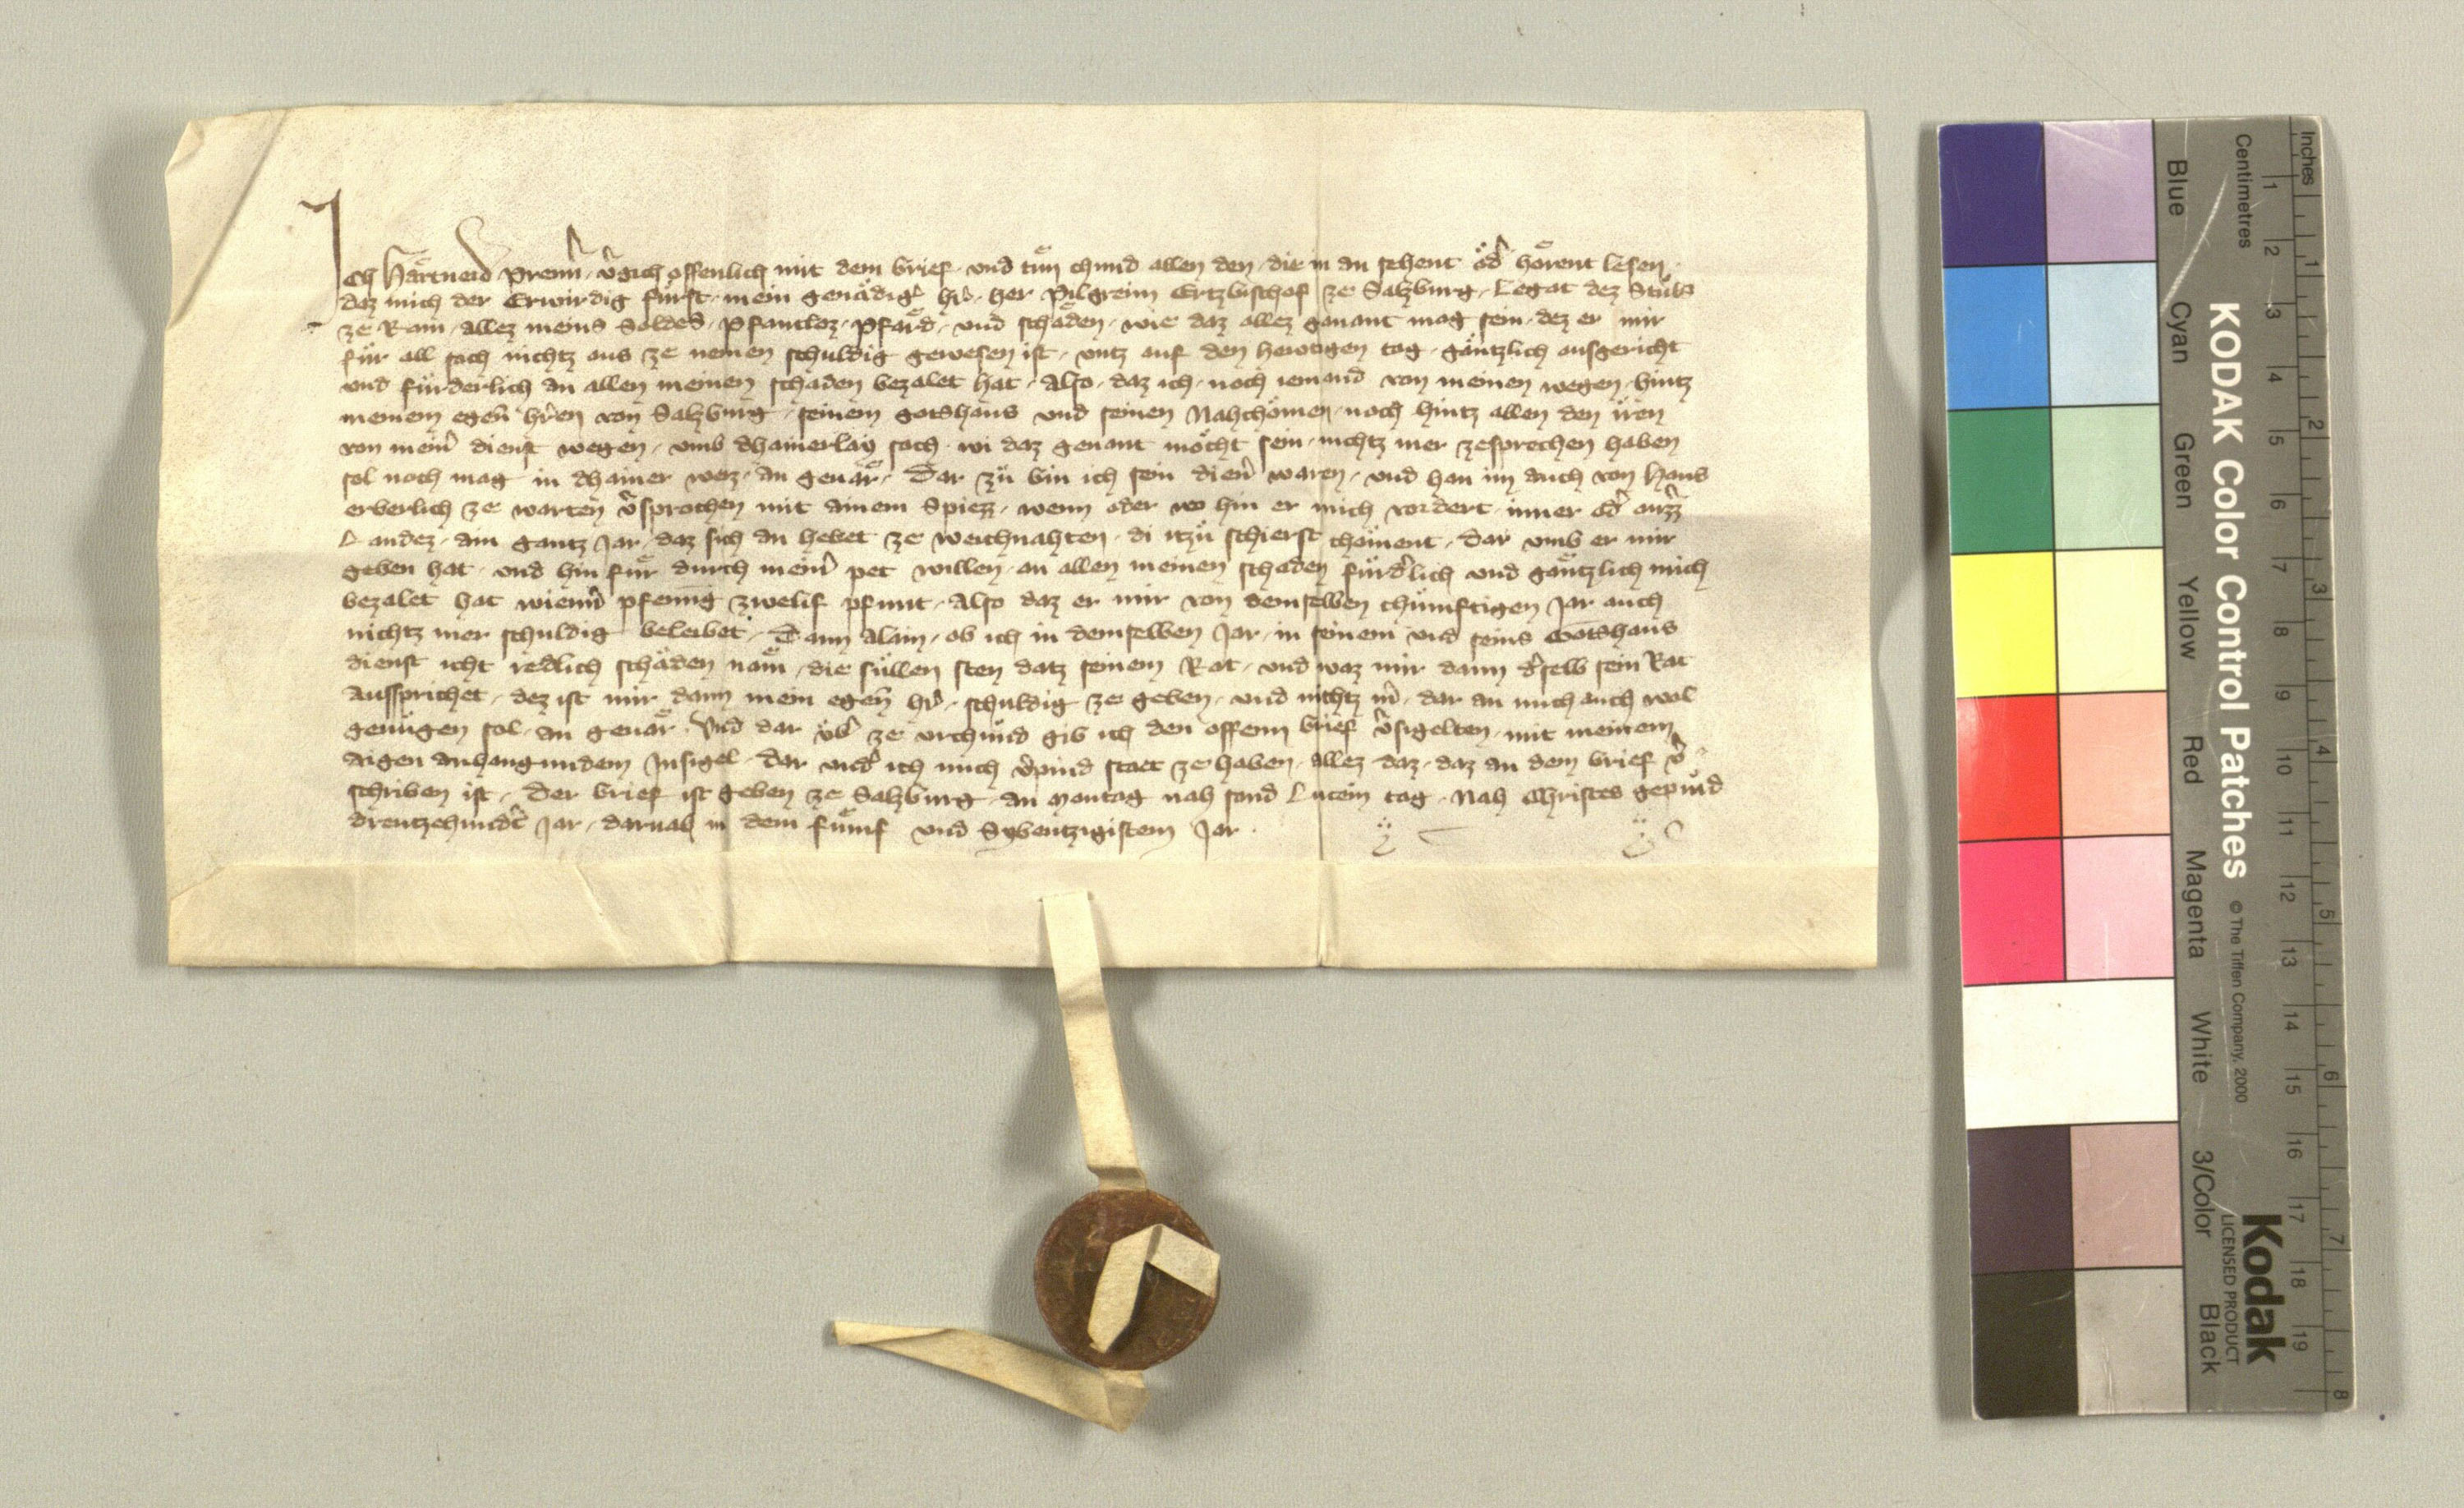 Ich Hartneid Prenn̄ v̂gich offenlich mit dem brief und tůn chund allen den die in an sehent od̂ hörent lesen
daz mich der Erwirdig fürst mein genädiĝ hr̂ her Pilgreim Ertzbischof ze Salzburg Legat dez Stůls
ze Rom allez meins Soldes Pfantloz Pfärd und schäden wie daz allez genant mag sein dez er mir
für all sach nichtz aus ze nemen schuldig gewesen ist untz auf den hewtigen tag gäntzlich ausgericht
und fürderlich an allen meinen schaden bezalet hat Also daz ich noch iemand von meinen wegen hintz
meinem egen̄ hr̂en von Salzburg seinem gotshaus und seinen Nahchömen noch hintz allen den iren
von mein̂ dienst wegen umb dhainerlay sach wi daz genant möcht sein nichtz mer zesprechen haben
sol noch mag in dhainer weiz an geuär Dar zů bin ich sein dien̂ waren und han im auch von haus
erberlich ze warten v̂sprochen mit ainem Spiezz wenn oder wo hin er mich vordert inner od̂ auzz
Landez ain gantz Jar daz sich an hebet ze weichnahten di itzů schierst chöment dar umb er mir
geben hat und hin für durch mein̂ pet willen an allen meinen schaden fürd̂lich und gäntzlich mich
bezalet hat wienn̂ pfenning zwelif pfunt Also daz er mir von demselben chümftigen Jar auch
nichtz mer schuldig beleibet Dann alain ob ich in demselben Jar in seinem und seins Gotshaus
dienst icht redlich schäden näm die süllen sten datz seinem Rat und waz mir dann d̂selb sein Rat
aussprichet dez ist mir dann mein egen̄ hr̂ schuldig ze geben und nichtz m̂ dar an mich auch wol
genügen sol an geuär Und dar üb̂ ze urchünd gib ich den offenn brief v̂sigelten mit meinem
aigen anhangundem Insigel dar und̂ ich mich v̂pind staet ze haben allez daz daz an dem brief v̂
schriben ist Der brief ist geben ze Salzburg an Montag nah sand Lucein tag Nah Christes gepurd
dreutzehundt̂ Jar darnah in dem fümf und Sybentzigistem Jar
KODAK Color Control Patches
© The Tiffen Company, 2000
Kodak
LICENSED PRODUCT
Inches 1 2 3 4 5 6 7 8
Centimetres 1 2 3 4 5 6 7 8 9 10 11 12 13 14 15 16 17 18 19
Blue Cyan Green Yellow Red Magenta White 3/Color Black